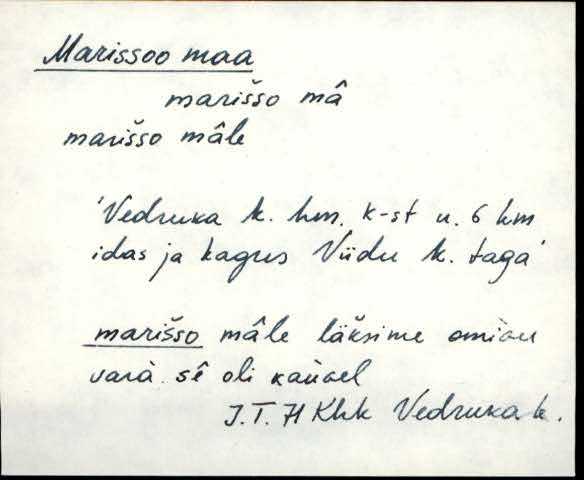 Marissoo maa
marišso mâ
marišso mâle
'Vedruka k. hm. k-st u. 6 km
idas ja kagus Viidu k. taga'
marišso mâle läksime
varà sê oli
J.T. 71 Khk Vedruka k.